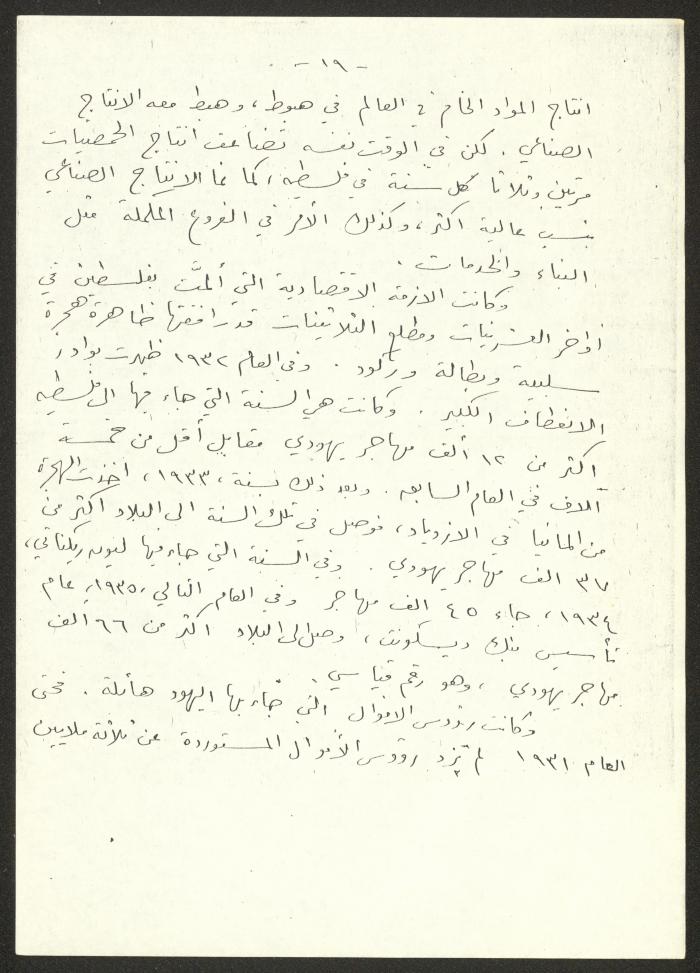 - ١٩ -
انتاج المواد الخام في العالم في هبوط، وهبط معه الانتاج
الصناعي. لكن في الوقت نفسه تضاعف انتاج الحمضيات
مرتين وثلاثا كل سنة في فلسطين، كما نما الانتاج الصناعي
بنسب عالية اكثر، وكذلك الأمر في الفروع المكملة مثل
البناء والخدمات.
وكانت الازمة الاقتصادية التي ألمّت بفلسطين في
اواخر العشرينيات ومطلع الثلاثينات قد رافقتها ظاهرة هجرة
سلبية وبطالة وركود. وفي العام ١٩٣٢ ظهرت بوادر
الانعطاف الكبير. وكانت هي السنة التي جاء فيها الى فلسطين
اكثر من ١٢ ألف مهاجر يهودي مقابل أقل من خمسة
آلاف في العام السابق. وبعد ذلك بسنة، ١٩٣٣، اخذت الهجرة
من المانيا في الازدياد، فوصل في تلك السنة الى البلاد اكثر من
٣٧ الف مهاجر يهودي. وفي السنة التي جاء فيها ليون ريكناتي،
١٩٣٤، جاء ٤٥ الف مهاجر وفي العام التالي، ١٩٣٥، عام
تأسيس بنك ديسكونت، وصل الى البلاد اكثر من ٦٦ الف
مهاجر يهودي، وهو رقم قياسي.
وكانت رؤوس الاموال التي جاء بها اليهود هائلة. فحتى
العام ١٩٣١ لم تزد رؤوس الأموال المستوردة عن ثلاثة ملايين